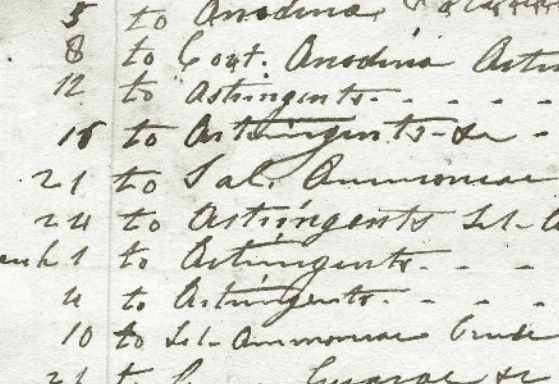 5 to Anodina
8 to Cont. Anodina Astri
12 to Astringents - - - -
15 to Astringents - &c -
21 to Sal. Ammoniac
24 to Astringents Sal-A
1 to Astringents - - -
4 to Astringents - - - -
10 to Sal-Ammoniac Crude
to